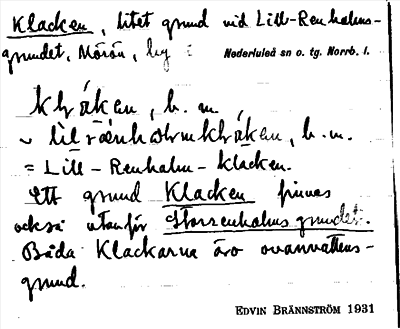 Klacken, litet grund vid Lill-Renholms-
grundet, Mörön, by i Nederluleå sn o. tg. Norrb. l.
klάken, b. m.
~ lilrænholmklάken, b. m.
= Lill-Renholm-Klacken.
Ett grund Klacken finnes
också utanför Storrenholmsgrundet.
Båda Klackarna äro ovanvattens-
grund.
EDVIN BRÄNNSTRÖM 1931